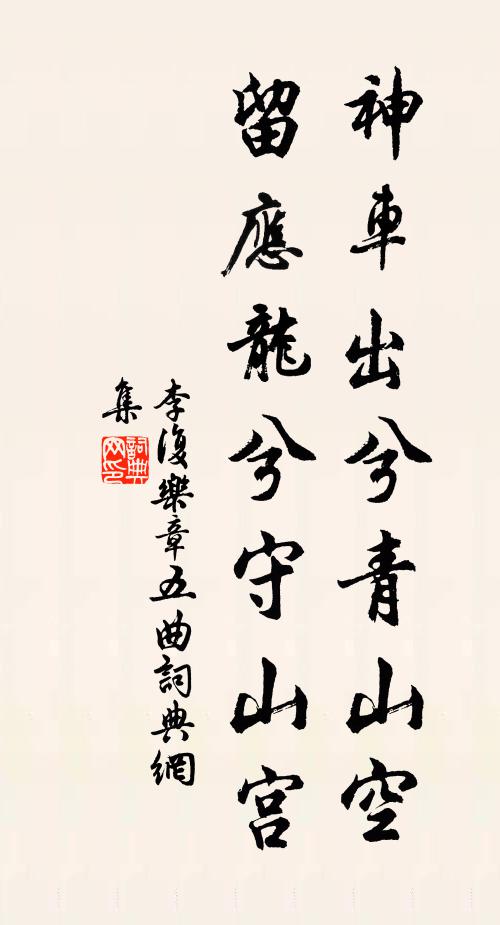 神車出兮青山空
留應龍兮守山宮
李復樂章五曲詞典網
集
詞典網印